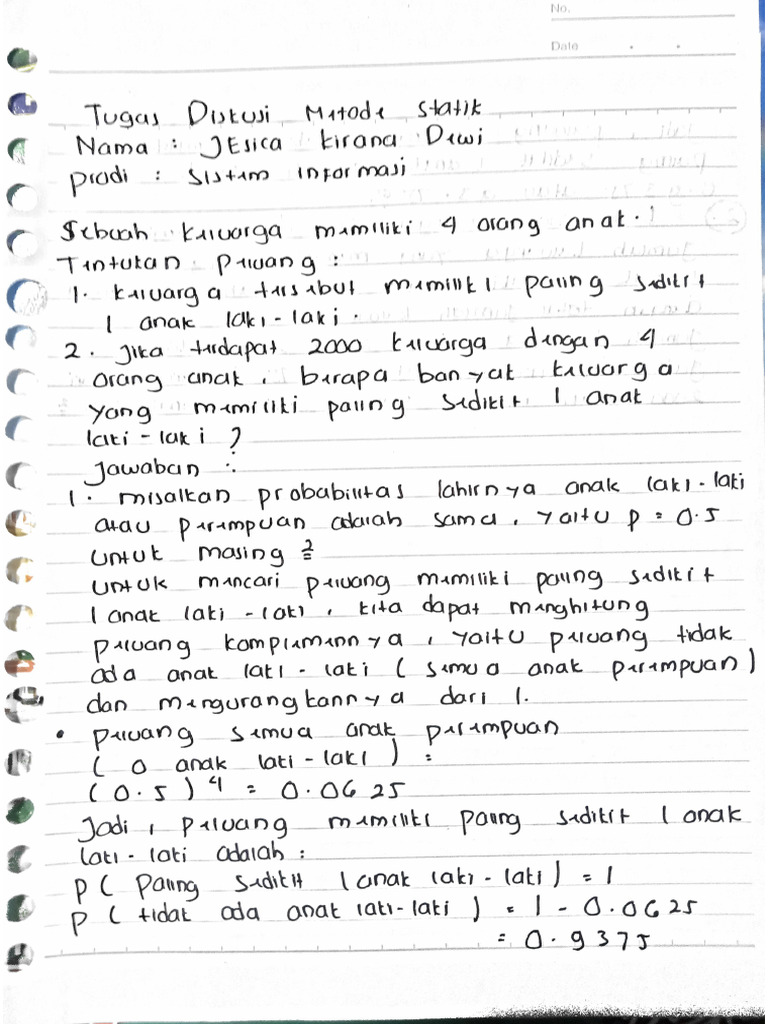 No.
Date
Tugas Diskusi Metode Statik
Nama : Jesica Kirana Dewi
Prodi : Sistem Informasi
Sebuah keluarga memiliki 4 orang anak.
Tentukan peluang :
1. keluarga tersebut memiliki paling sedikit
1 anak laki-laki.
2. Jika terdapat 2000 keluarga dengan 4
orang anak, berapa banyak keluarga
yang memiliki paling sedikit 1 anak
laki-laki ?
Jawaban :
1. misalkan probabilitas lahirnya anak laki-laki
atau perempuan adalah sama, yaitu p = 0.5
untuk masing²
untuk mencari peluang memiliki paling sedikit
1 anak laki-laki, kita dapat menghitung
peluang komplemennya, yaitu peluang tidak
ada anak laki-laki (semua anak perempuan)
dan mengurangkannya dari 1.
• peluang semua anak perempuan
( 0 anak laki-laki ) :
(0.5)⁴ = 0.0625
Jadi, peluang memiliki paling sedikit 1 anak
laki-laki adalah :
P ( Paling sedikit 1 anak laki-laki ) = 1
P ( tidak ada anak laki-laki ) = 1 - 0.0625
= 0.9375